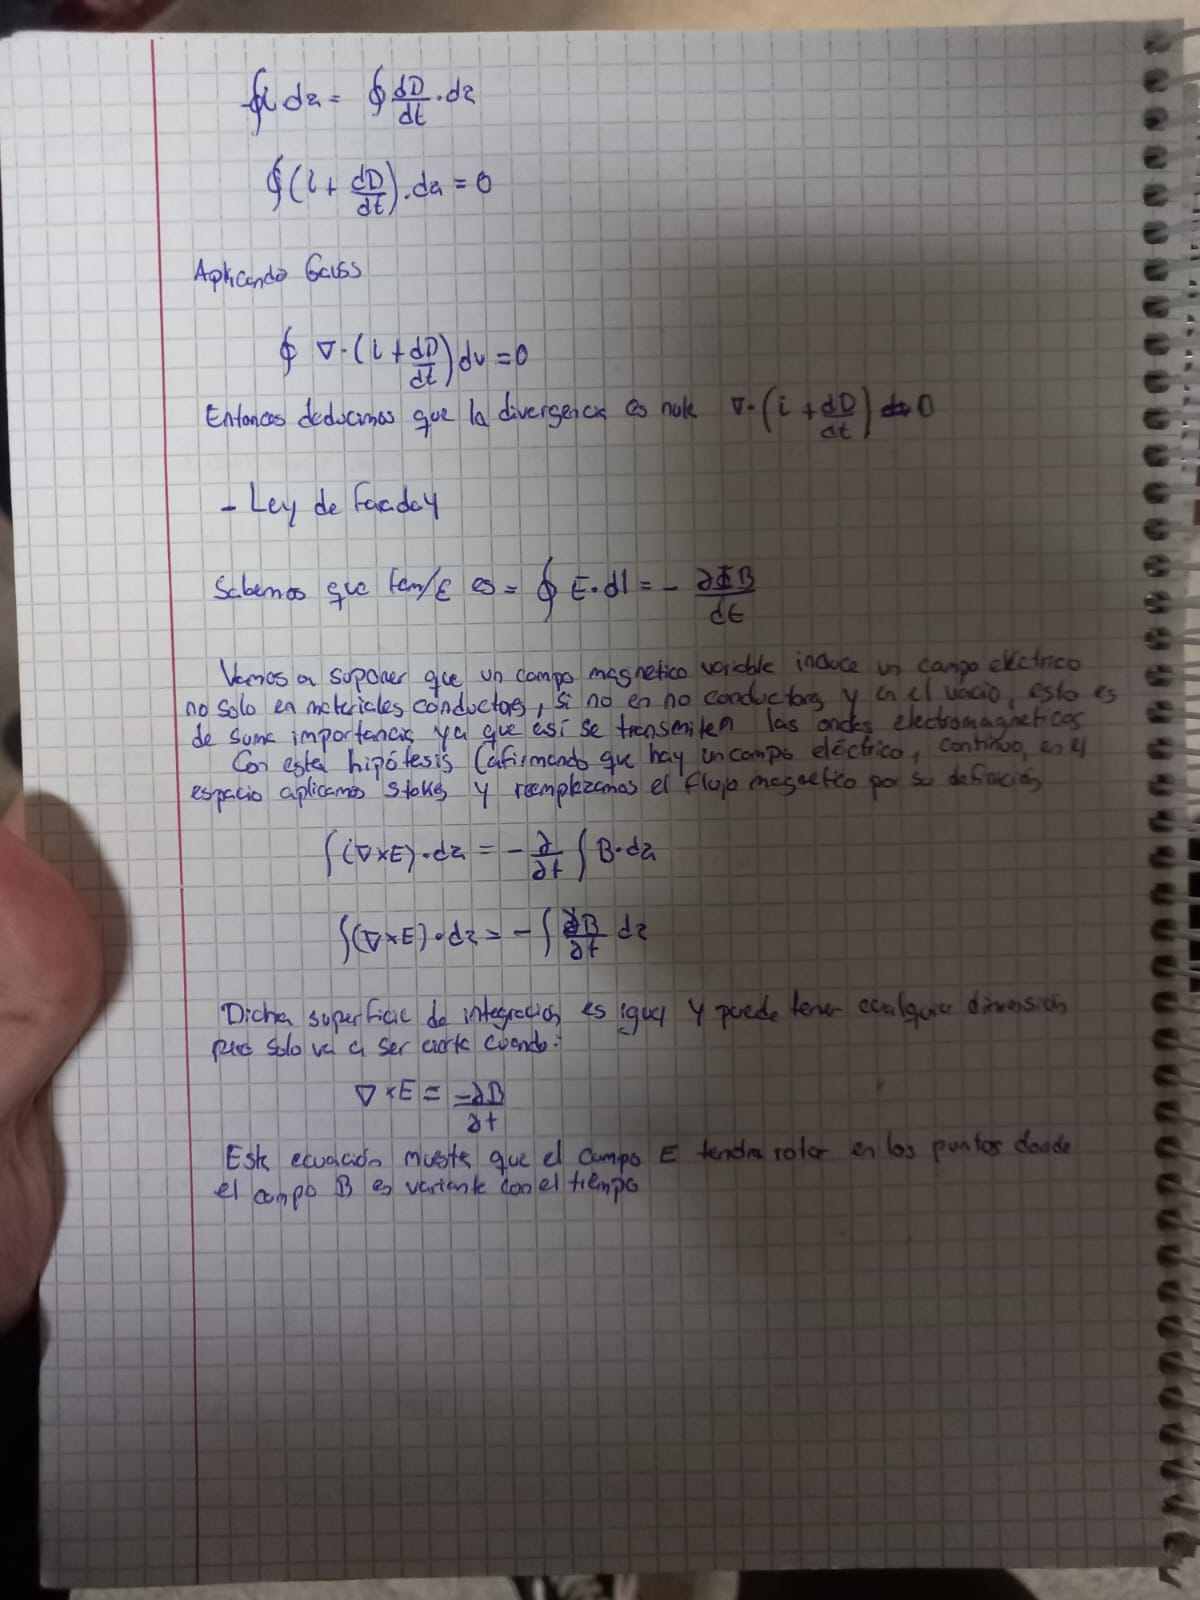 -∮i da = ∮ dD/dt · da
∮(i + dD/dt) · da = 0
Aplicando Gauss
∮ ∇·(i + dD/dt) dv = 0
Entonces deducimos que la divergencia es nula ∇·(i + dD/dt) = 0
- Ley de Faraday
Sabemos que fem/E es = ∮ E·dl = - ∂ΦB/dt
Vamos a suponer que un campo magnetico variable induce un campo eléctrico
no solo en materiales conductores, si no en no conductores y en el vacio, esto es
de suma importancia ya que así se transmiten las ondas electromagneticas
Con esta hipótesis (afirmando que hay un campo eléctrico, continuo, en el
espacio aplicamos Stokes y reemplazamos el flujo magnetico por su definición
∫(∇×E)·da = - ∂/∂t ∫ B·da
∫(∇×E)·da = - ∫ ∂B/∂t da
Dicha superficie de integración es igual y puede tener cualquier dimensión
pero solo va a ser cierta cuando:
∇×E = -∂B/∂t
Esta ecuación muestra que el campo E tendra rotor en los puntos donde
el campo B es variante con el tiempo